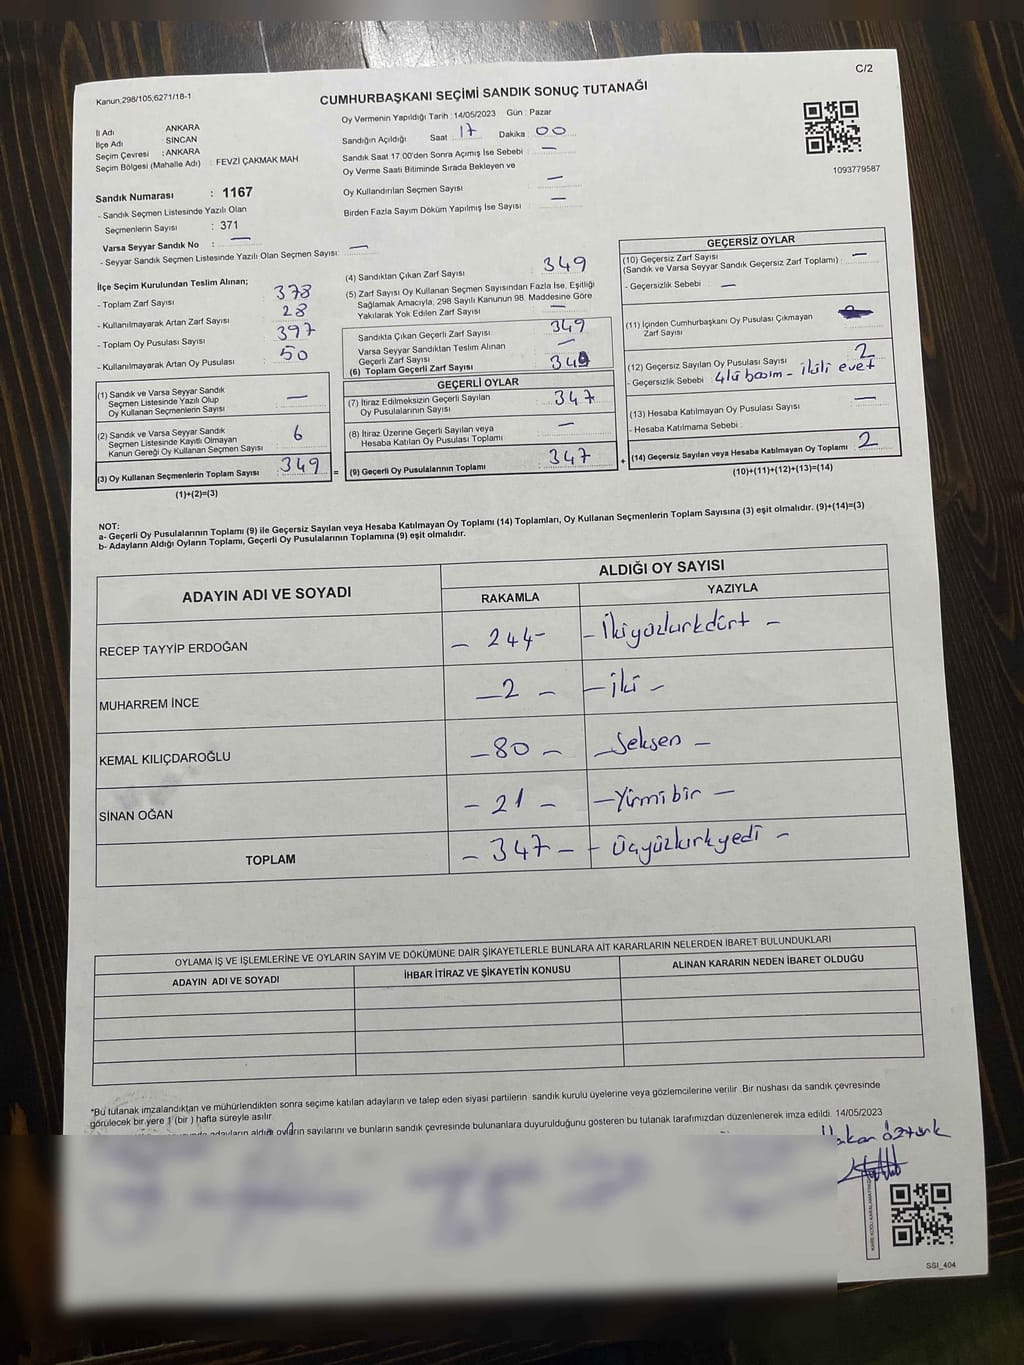 C/2
Kanun,298/105,6271/18-1
CUMHURBAŞKANI SEÇİMİ SANDIK SONUÇ TUTANAĞI
İl Adı ANKARA
İlçe Adı : SİNCAN
Seçim Çevresi : ANKARA
Seçim Bölgesi (Mahalle Adı) : FEVZİ ÇAKMAK MAH
Oy Vermenin Yapıldığı Tarih : 14/05/2023 Gün : Pazar
Sandığın Açıldığı Saat 17 Dakika : 00
Sandık Saat 17:00'den Sonra Açımış İse Sebebi : —
Oy Verme Saati Bitiminde Sırada Bekleyen ve
Oy Kullandırılan Seçmen Sayısı —
Birden Fazla Sayım Döküm Yapılmış İse Sayısı —
1093779587
Sandık Numarası : 1167
- Sandık Seçmen Listesinde Yazılı Olan
Seçmenlerin Sayısı : 371
Varsa Seyyar Sandık No : —
- Seyyar Sandık Seçmen Listesinde Yazılı Olan Seçmen Sayısı: —
İlçe Seçim Kurulundan Teslim Alınan;
- Toplam Zarf Sayısı 378
- Kullanılmayarak Artan Zarf Sayısı 28
- Toplam Oy Pusulası Sayısı 397
- Kullanılmayarak Artan Oy Pusulası 50
(1) Sandık ve Varsa Seyyar Sandık
Seçmen Listesinde Yazılı Olup
Oy Kullanan Seçmenlerin Sayısı —
(2) Sandık ve Varsa Seyyar Sandık
Seçmen Listesinde Kayıtlı Olmayan
Kanun Gereği Oy Kullanan Seçmen Sayısı 6
(3) Oy Kullanan Seçmenlerin Toplam Sayısı 349 =
(1)+(2)=(3)
(4) Sandıktan Çıkan Zarf Sayısı 349
(5) Zarf Sayısı Oy Kullanan Seçmen Sayısından Fazla İse, Eşitliği
Sağlamak Amacıyla, 298 Sayılı Kanunun 98. Maddesine Göre
Yakılarak Yok Edilen Zarf Sayısı —
Sandıkta Çıkan Geçerli Zarf Sayısı 349
Varsa Seyyar Sandıktan Teslim Alınan
Geçerli Zarf Sayısı —
(6) Toplam Geçerli Zarf Sayısı 349
GEÇERLİ OYLAR
(7) İtiraz Edilmeksizin Geçerli Sayılan
Oy Pusulalarının Sayısı 347
(8) İtiraz Üzerine Geçerli Sayılan veya
Hesaba Katılan Oy Pusulası Toplamı —
(9) Geçerli Oy Pusulalarının Toplamı 347 +
GEÇERSİZ OYLAR
(10) Geçersiz Zarf Sayısı
(Sandık ve Varsa Seyyar Sandık Geçersiz Zarf Toplamı) : —
- Geçersizlik Sebebi : —
(11) İçinden Cumhurbaşkanı Oy Pusulası Çıkmayan
Zarf Sayısı
(12) Geçersiz Sayılan Oy Pusulası Sayısı 2
- Geçersizlik Sebebi : 4lü basım - ikili evet
(13) Hesaba Katılmayan Oy Pusulası Sayısı —
- Hesaba Katılmama Sebebi :
(14) Geçersiz Sayılan veya Hesaba Katılmayan Oy Toplamı 2
(10)+(11)+(12)+(13)=(14)
NOT:
a- Geçerli Oy Pusulalarının Toplamı (9) ile Geçersiz Sayılan veya Hesaba Katılmayan Oy Toplamı (14) Toplamları, Oy Kullanan Seçmenlerin Toplam Sayısına (3) eşit olmalıdır. (9)+(14)=(3)
b- Adayların Aldığı Oyların Toplamı, Geçerli Oy Pusulalarının Toplamına (9) eşit olmalıdır.
ADAYIN ADI VE SOYADI
ALDIĞI OY SAYISI
RAKAMLA YAZIYLA
RECEP TAYYİP ERDOĞAN - 244 - - İkiyüzkırkdört -
MUHARREM İNCE - 2 - - İki -
KEMAL KILIÇDAROĞLU - 80 - - Seksen -
SİNAN OĞAN - 21 - - Yirmibir -
TOPLAM - 347 - - Üçyüzkırkyedi -
OYLAMA İŞ VE İŞLEMLERİNE VE OYLARIN SAYIM VE DÖKÜMÜNE DAİR ŞİKAYETLERLE BUNLARA AİT KARARLARIN NELERDEN İBARET BULUNDUKLARI
ADAYIN ADI VE SOYADI İHBAR İTİRAZ VE ŞİKAYETİN KONUSU ALINAN KARARIN NEDEN İBARET OLDUĞU
*Bu tutanak imzalandıktan ve mühürlendikten sonra seçime katılan adayların ve talep eden siyasi partilerin sandık kurulu üyelerine veya gözlemcilerine verilir .Bir nüshası da sandık çevresinde
görülecek bir yere 1 (bir ) hafta süreyle asılır.
adayların aldığı oyların sayılarını ve bunların sandık çevresinde bulunanlara duyurulduğunu gösteren bu tutanak tarafımızdan düzenlenerek imza edildi. 14/05/2023
Hakan Öztürk
SSI_404